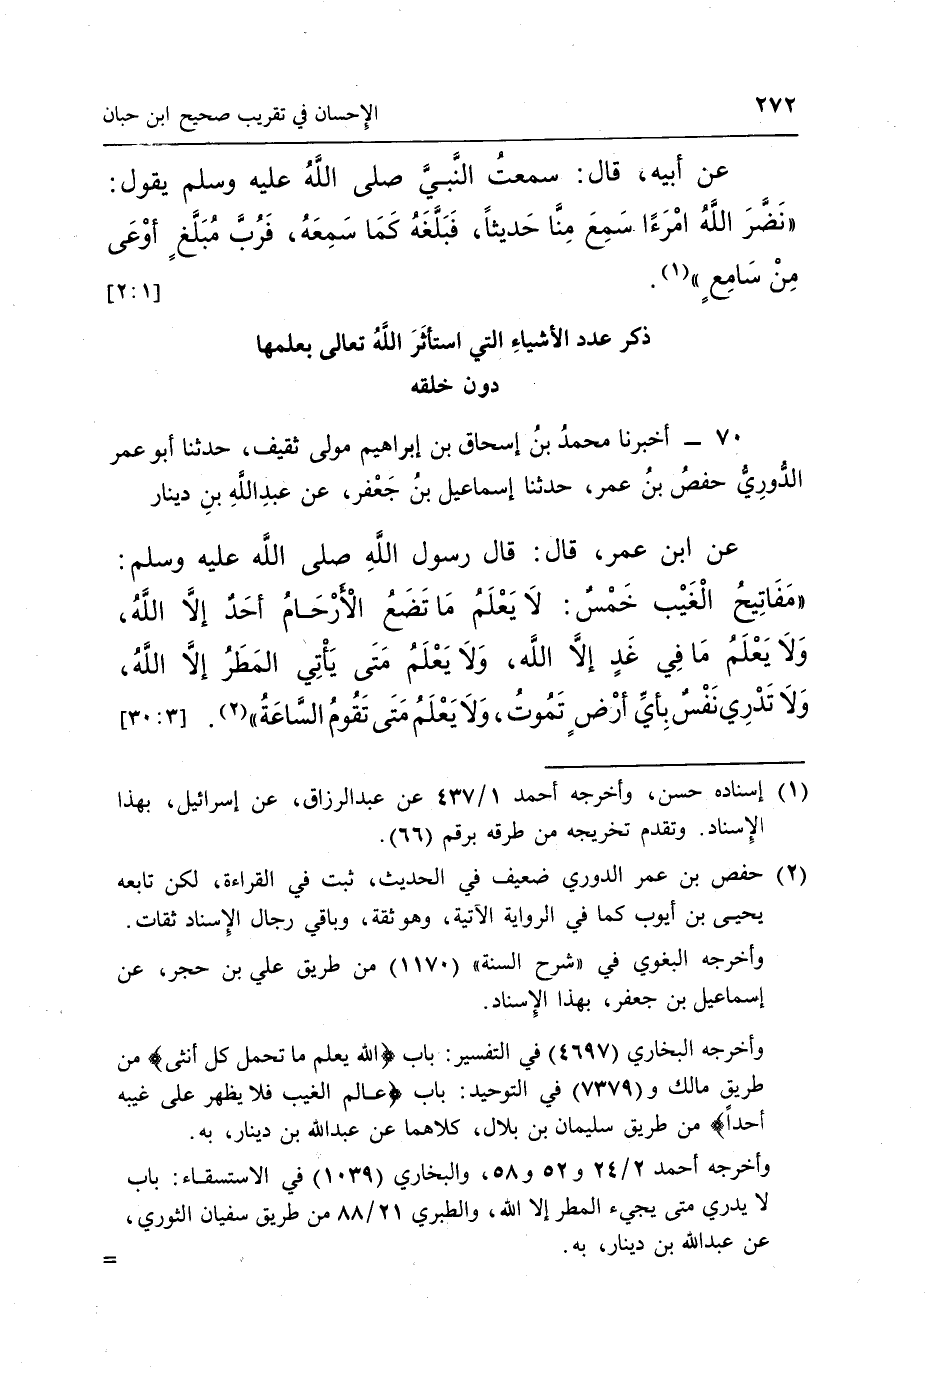 ٢٧٢ الإحسان في تقريب صحيح ابن حبان
عن أبيه، قال: سمعتُ النَّبيَّ صلى اللَّهُ عليه وسلم يقول:
«نَضَّرَ اللَّهُ امْرَءًا سَمِعَ مِنَّا حَديثاً، فَبَلَّغَهُ كَمَا سَمِعَهُ، فَرُبَّ مُبَلَّغٍ أوْعَى
مِنْ سَامِعٍ»(١). [٢:١]
ذكر عدد الأشياءِ التي استأثَرَ اللَّهُ تعالى بعلمها
دون خلقه
٧٠ ــ أخبرنا محمدُ بنُ إسحاق بن إبراهيم مولى ثقيف، حدثنا أبو عمر
الدُّورِيُّ حفصُ بنُ عمر، حدثنا إسماعيل بنُ جَعْفر، عن عبدِاللَّهِ بنِ دينار
عن ابن عمر، قال: قال رسول اللَّهِ صلى اللَّه عليه وسلم:
«مَفَاتِيحُ الْغَيْب خَمْسٌ: لَا يَعْلَمُ مَا تَضَعُ الْأَرْحَـامُ أحَدٌ إلَّا اللَّهُ،
وَلَا يَعْلَمُ مَا فِي غَدٍ إلَّا اللَّه، وَلَا يَعْلَمُ مَتَى يَأْتِي المَطَرُ إلَّا اللَّهُ،
وَلَا تَدْرِي نَفْسٌ بِأيِّ أرْضٍ تَمُوتُ، وَلَا يَعْلَمُ مَتَى تَقُومُ السَّاعَةُ»(٢). [٣٠:٣]
(١) إسناده حسن، وأخرجه أحمد ٤٣٧/١ عن عبدالرزاق، عن إسرائيل، بهذا
الإسناد. وتقدم تخريجه من طرقه برقم (٦٦).
(٢) حفص بن عمر الدوري ضعيف في الحديث، ثبت في القراءة، لكن تابعه
يحيـى بن أيوب كما في الرواية الآتية، وهو ثقة، وباقي رجال الإسناد ثقات.
وأخرجه البغوي في «شرح السنة» (١١٧٠) من طريق علي بن حجر، عن
إسماعيل بن جعفر، بهذا الإسناد.
وأخرجه البخاري (٤٦٩٧) في التفسير: باب ﴿الله يعلم ما تحمل كل أنثى﴾ من
طريق مالك و (٧٣٧٩) في التوحيد: باب ﴿عـالم الغيب فلا يظهر على غيبه
أحداً﴾ من طريق سليمان بن بلال، كلاهما عن عبدالله بن دينار، به.
وأخرجه أحمد ٢٤/٢ و ٥٢ و ٥٨، والبخاري (١٠٣٩) في الاستسقـاء: باب
لا يدري متى يجيء المطر إلا الله، والطبري ٨٨/٢١ من طريق سفيان الثوري،
عن عبدالله بن دينار، به.
=